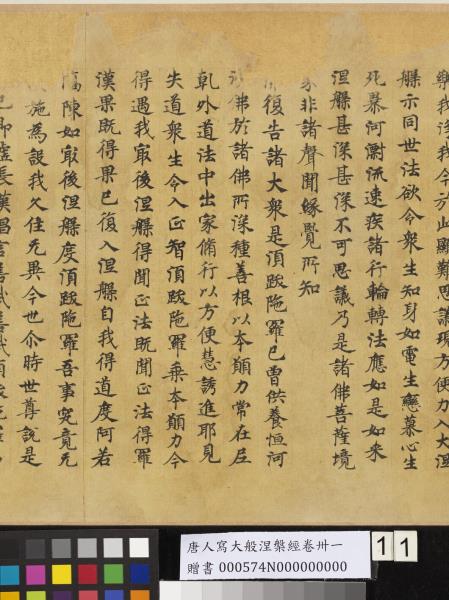 樂我淨我今於此顯難思議現方便力入大涅
槃示同世法欲令衆生知身如電生戀慕心生
死暴河漂流速疾諸行輪轉法應如是如來
涅槃甚深甚深不可思議乃是諸佛菩薩境
界非諸聲聞緣覺所知
復告諸大衆是須跋陁羅已曾供養恒河
沙佛於諸佛所深種善根以本願力常在尼
乹外道法中出家脩行以方便慧誘進耶見
失道衆生令入正智須跋陁羅乗本願力今
得遇我冣後涅槃得聞正法既聞正法得羅
漢果既得果已復入涅槃自我得道度阿若
憍陳如冣後涅槃度須跋陁羅吾事究竟无
施爲設我久住无異今也尒時世尊說是
已即虛長歎唱言善哉善哉須跋陁羅
唐人寫大般涅槃經卷卅一
贈書 000574N000000000
1 1